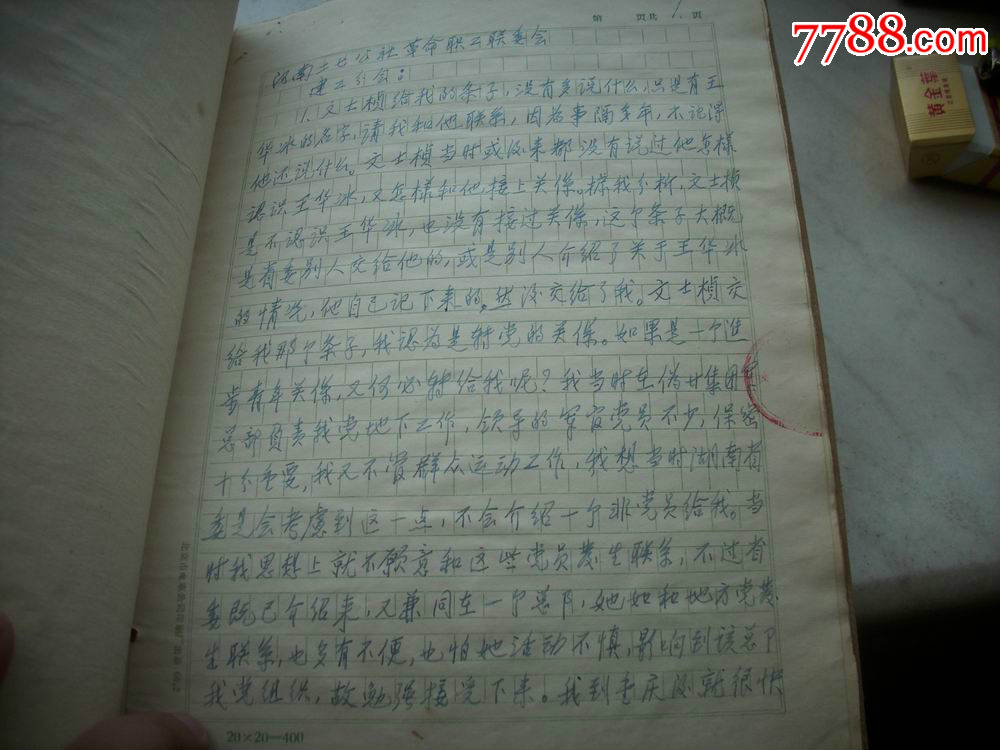 7788.com
第 页共 页
河南二七公社革命职工联委会
建工分会：
1. 文士桢给我的条子，没有多说什么只是有王
华冰的名字，请我和他联系，因为事隔多年，不记得
他还说什么。文士桢当时或后来都没有说过他怎样
认识王华冰，又怎样和他接上关係。據我分析，文士桢
是不认识王华冰，也没有接过关係，这个条子大概
是省委别人交给他的，或是别人介绍了关于王华冰
的情况，他自己记下来的，然后交给了我。文士桢交
给我那个条子，我认为是转党的关係。如果是一个进
步青年关係，又何必转给我呢？我当时在伪廿集团军
总部负责我党地下工作，领导的军官党员不少，保密
十分重要，我又不管群众运动工作，我想当时湖南省
委是会考慮到这一点，不会介绍一个非党员给我。当
时我思想上就不愿意和这些党员發生联系，不过省
委既已介绍来，又兼同在一个总队，她如和地方党發
生联系，也多有不便，也怕她活动不慎，影响到该总下
我党组织，故勉强接受下来。我到重庆后就很快
20×20—400
黄金叶